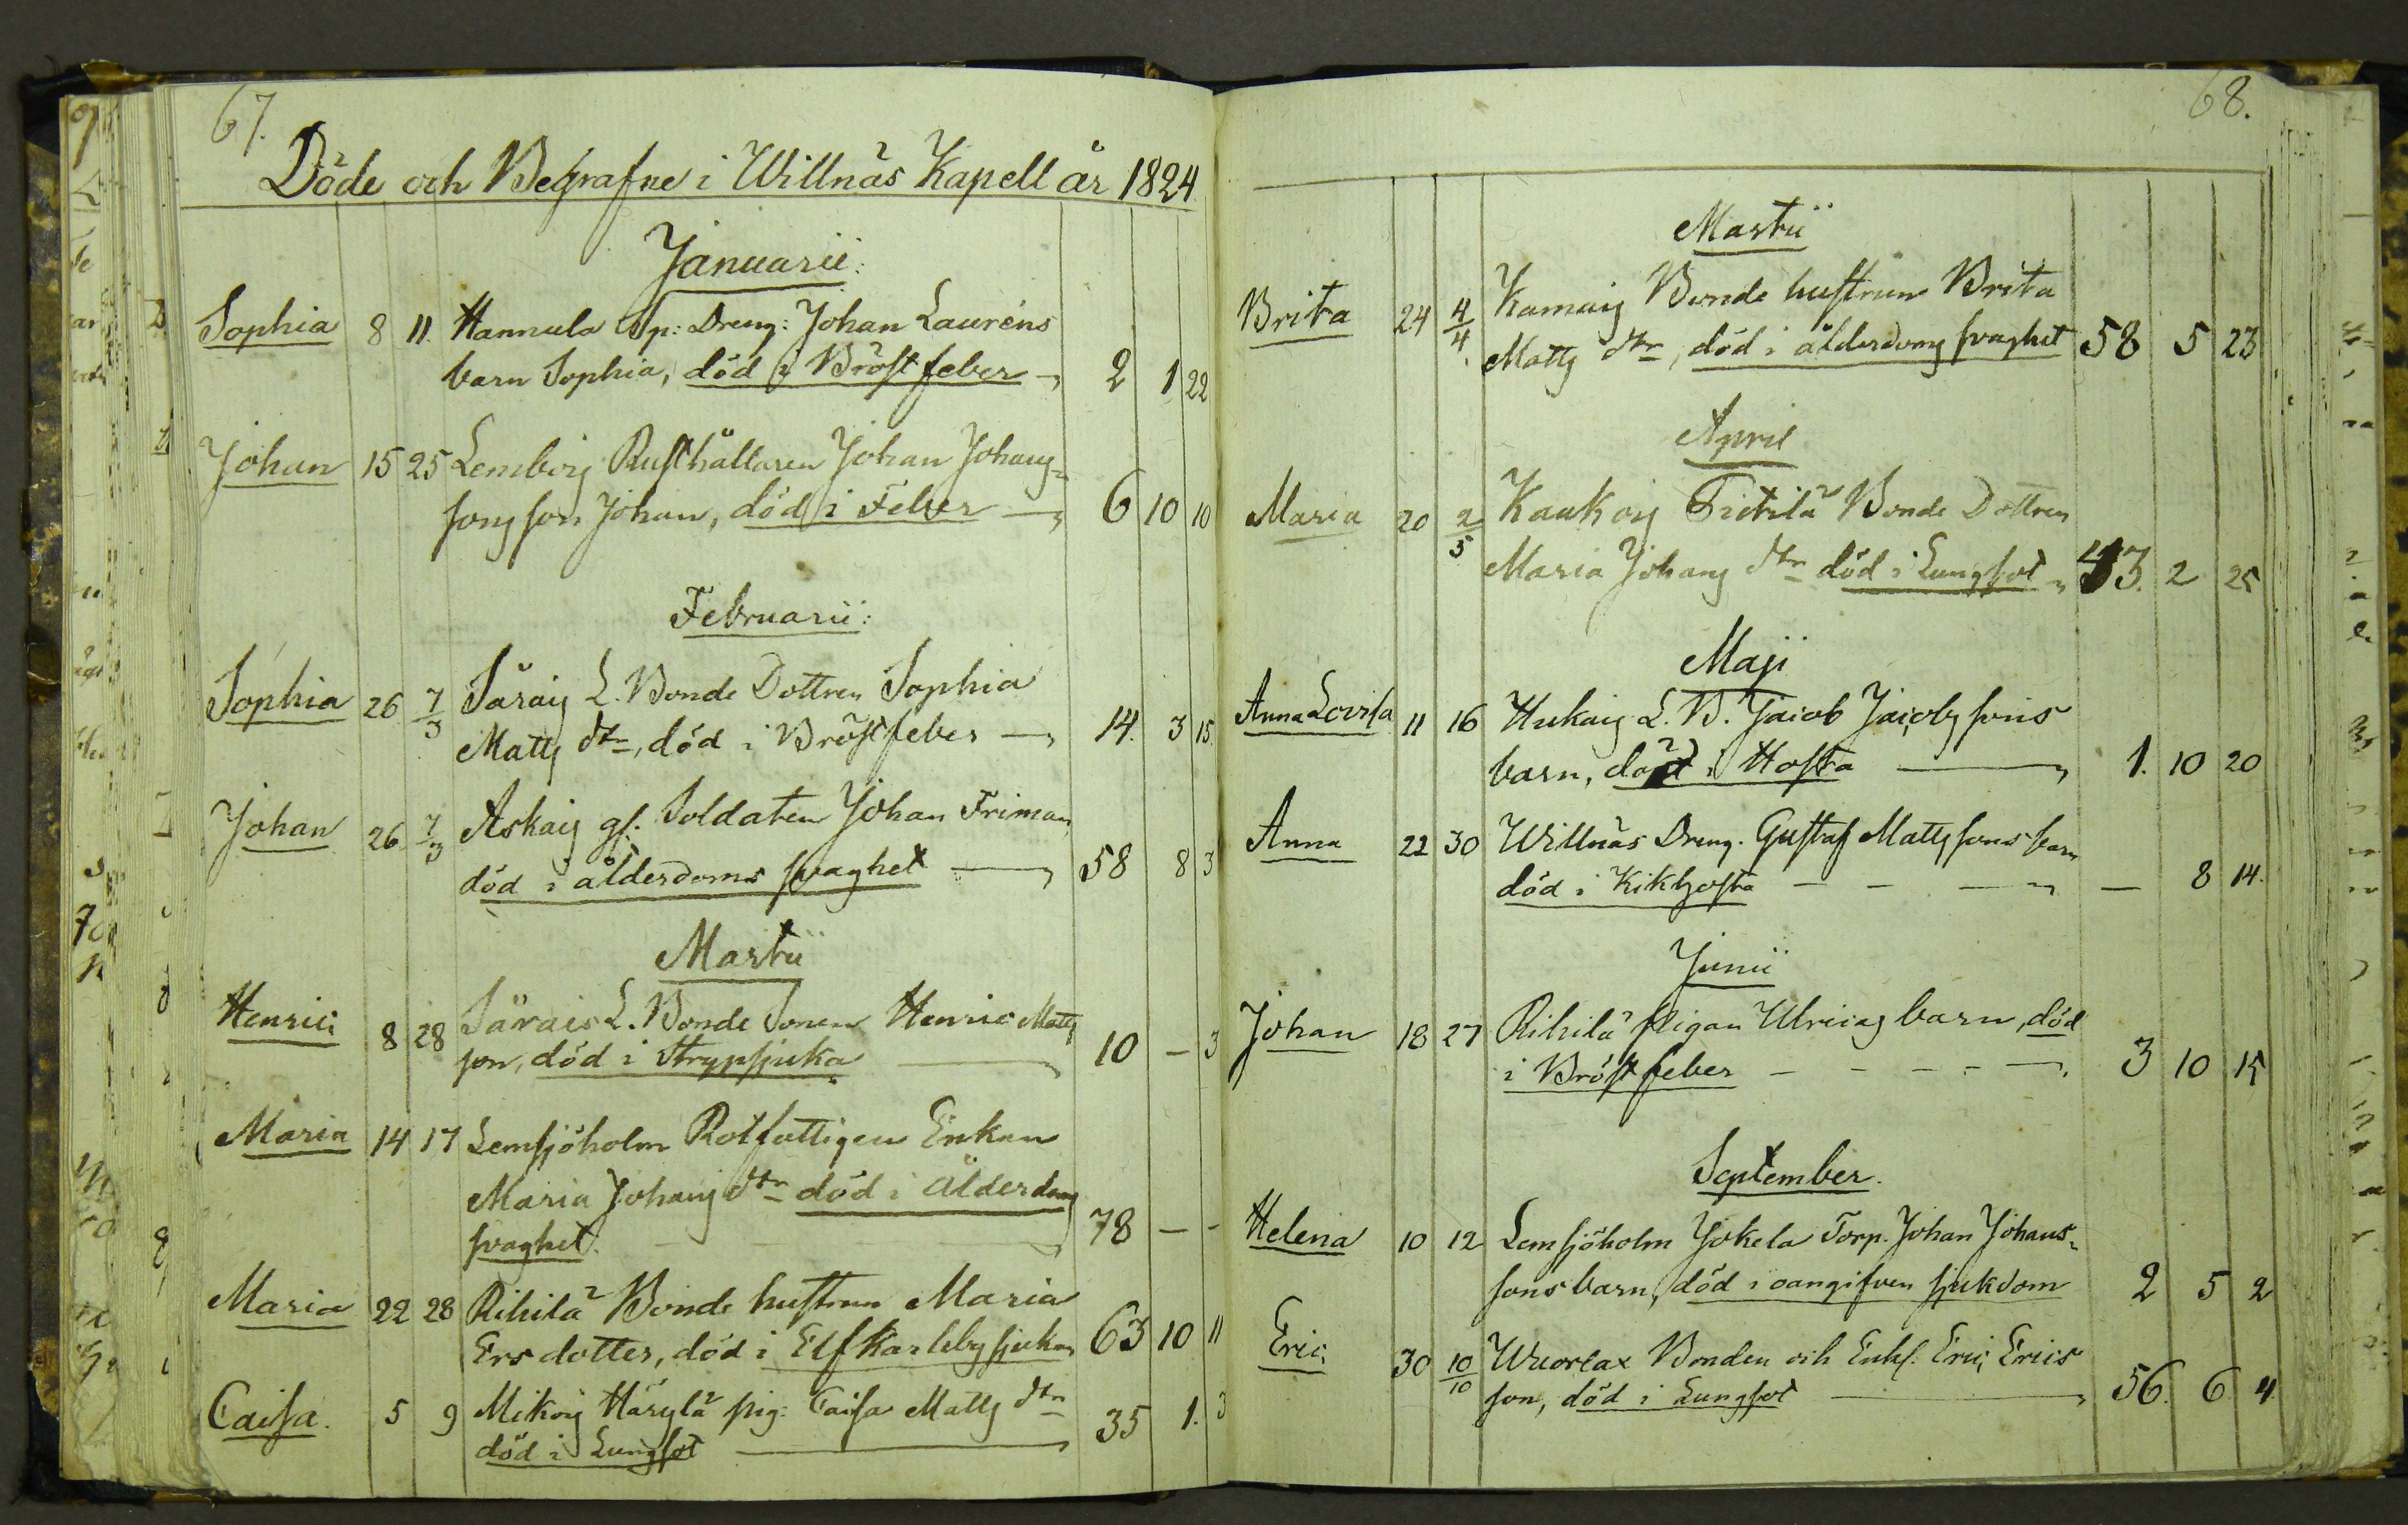 67.
Döde och Begrafne i Willnäs Kapell år 1824.
Januarii:
Sophia 8 11. Hannula Sp: Dreng: Johan Lauréns
barn Sophia, död i Bröst feber 2 1 22
Johan 15 25 Lembois Rusthållaren Johan Johans=
sons son Johan, död i Feber 6 10 10
Februarii:
Sophia 26 7/3 Särais L. Bonde Dottren Sophia
Matts dtr, död i Bröstfeber 14. 3 15.
Johan 26 7/3 Askais gf: Soldaten Johan Friman
död i ålderdoms svaghet 58 8 3
Martii
Henric 8 28 Särais L. Bonde Sonen Henric Matts
son, död i Strypsjuka 10 – 3
Maria 14 17 Lemsjöholm Rotfattigen Enkan
Maria Johans dtr död i Ålderdoms
svaghet. 78 – –
Maria 22 28 Rihilä Bonde hustrun Maria
Ersdotter, död i Elfkarleby sjukan 63 10 11
Caisa. 5 9 Mikois Härylä pig: Caisa Matts dtr
död i Lungsot 35 1. 3
68.
Martii
Brita 24 4/4 Kamais Bonde hustrun Brita
Matts dtr, död i ålderdoms svaghet 58 5 23
April
Maria 20 2/5 Kaukois Tietilä Bonde Dottren
Maria Johans dtr död i Lungsot 43. 2 25
Maji
Anna Lovisa 11 16 Hukais L. B. Jacob Jacobs sons
barn, död i Hosta 1. 10 20
Anna 22 30 Willnäs Dreng. Gustaf Matts sons barn
död i Kikhosta – – – – 8 14.
Junii
Johan 18 27 Rihilä pigan Ulricas barn, död
i Bröst feber – – – – 3 10 15
September.
Helena 10 12 Lemsjöholm Jokela Torp. Johan Johans=
sons barn, död i oangifven sjukdom 2 5 2
Eric 30 10/10 Wuorlax Bonden och Enkl. Eric Erics
son, död i Lungsot 56. 6 4.